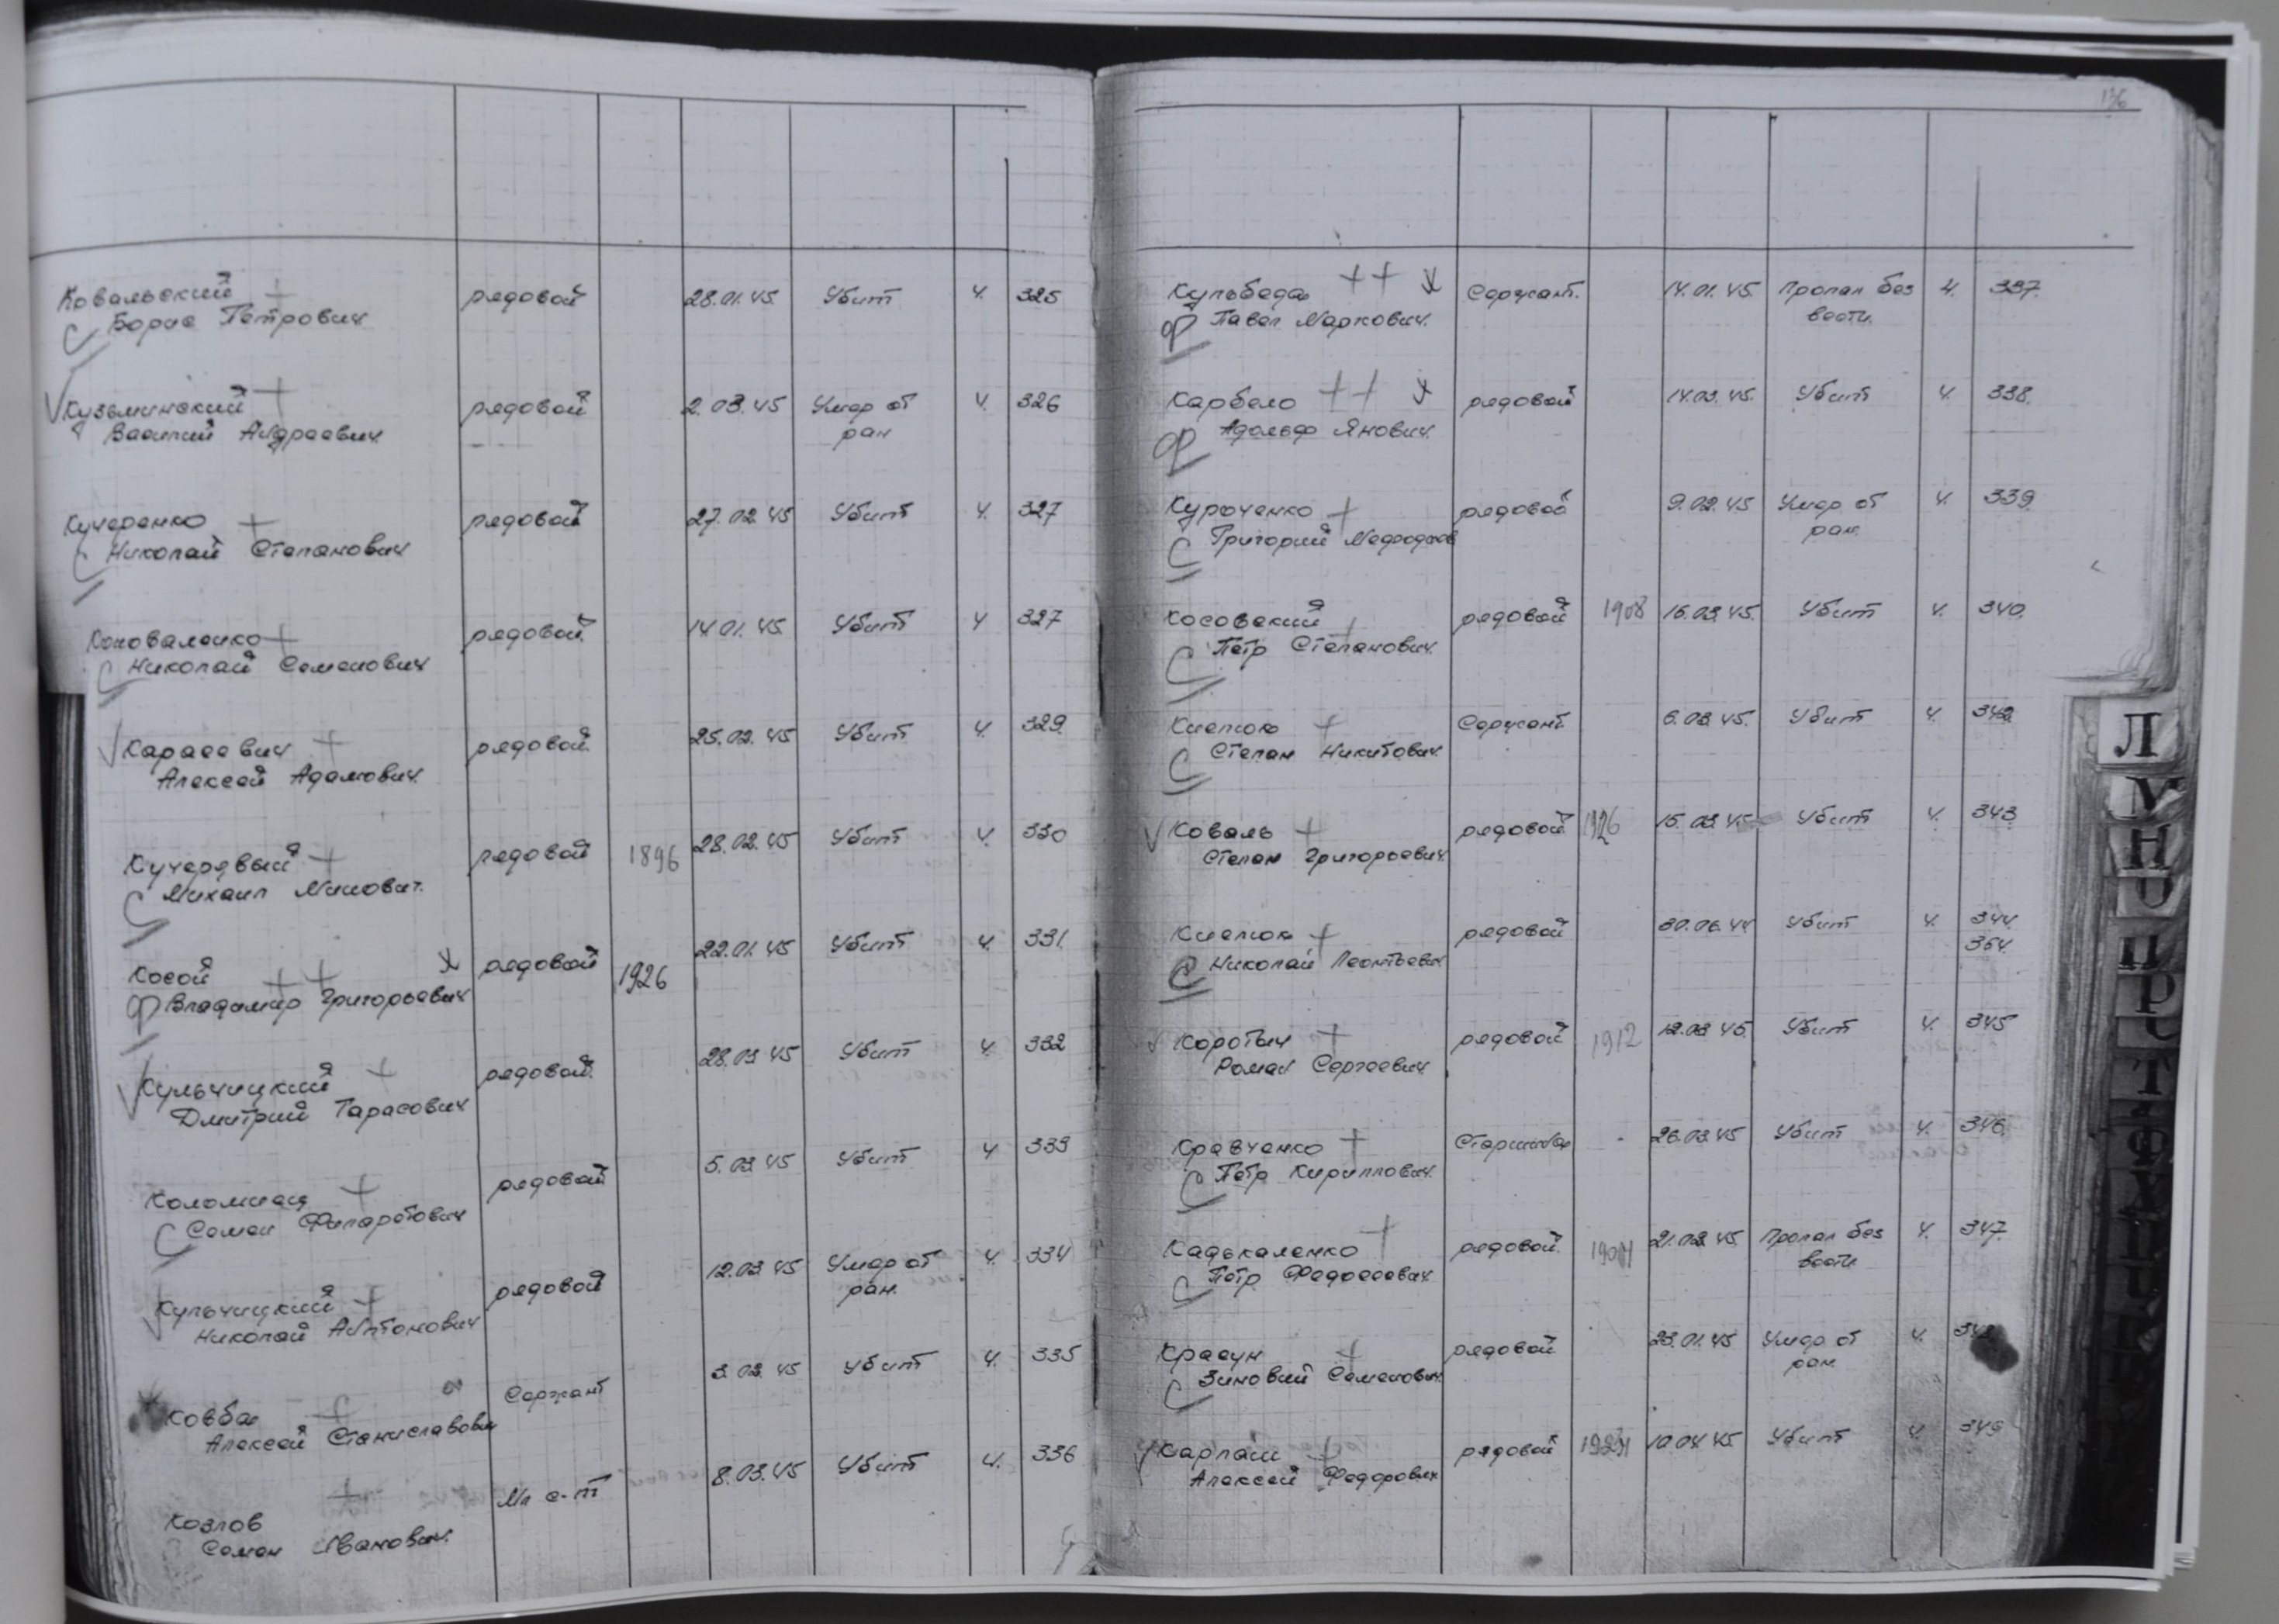 Ковальский рядовой 28.01.45 Убит Ч. 325
Борис Петрович
Кузьминский рядовой 2.03.45 Умер от Ч. 326
Василий Андреевич ран
Кучеренко рядовой 27.02.45 Убит Ч. 327
Николай Степанович
Коноваленко рядовой 14.01.45 Убит Ч 327
Николай Семенович
Карасевич рядовой 25.02.45 Убит Ч. 329
Алексей Адамович
Кучерявый рядовой 1896 28.02.45 Убит Ч. 330
Михаил Минович
Косой рядовой 1926 22.01.45 Убит Ч. 331
Владимир Григорьевич
Кульчицкий рядовой 28.03.45 Убит Ч. 332
Дмитрий Тарасович
Коломиец рядовой 5.03.45 Убит Ч 333
Семен Филаретович
Кульчицкий рядовой 12.03.45 Умер от Ч. 334
Николай Антонович ран.
Ковба Сержант 3.03.45 Убит Ч. 335
Алексей Станиславович
Козлов Мл с-т 8.03.45 Убит Ч. 336
Семен Иванович
136
Кульбеда Сержант. 14.01.45 Пропал без Ч. 337.
Павел Маркович вести
Карбело рядовой 14.03.45. Убит Ч. 338.
Адольф Янович
Куроченко рядовой 9.02.45 Умер от Ч. 339.
Григорий ран.
Косовский рядовой 1908 16.03.45. Убит Ч. 340.
Петр Степанович
Сержант 6.03.45. Убит Ч.
Степан Никитович
Коваль рядовой 1926 15.03.45 Убит Ч. 343
Степан Григорьевич
рядовой 30.06.44 Убит Ч. 344.
Николай Леонтьевич 354.
Коротыч рядовой 1912 12.03.45 Убит Ч. 345
Роман Сергеевич
Кравченко Старшина 26.03.45 Убит Ч. 346.
Петр Кириллович
Кадькаленко рядовой 21.03.45 Пропал без Ч. 347
Петр Федосеевич вести
Красун рядовой 23.01.45 Умер от Ч.
Зиновий Семенович ран
Карпаш рядовой 10.04.45 Убит Ч 349
Алексей Федорович
Л
М
Н
О
П
Р
С
Т